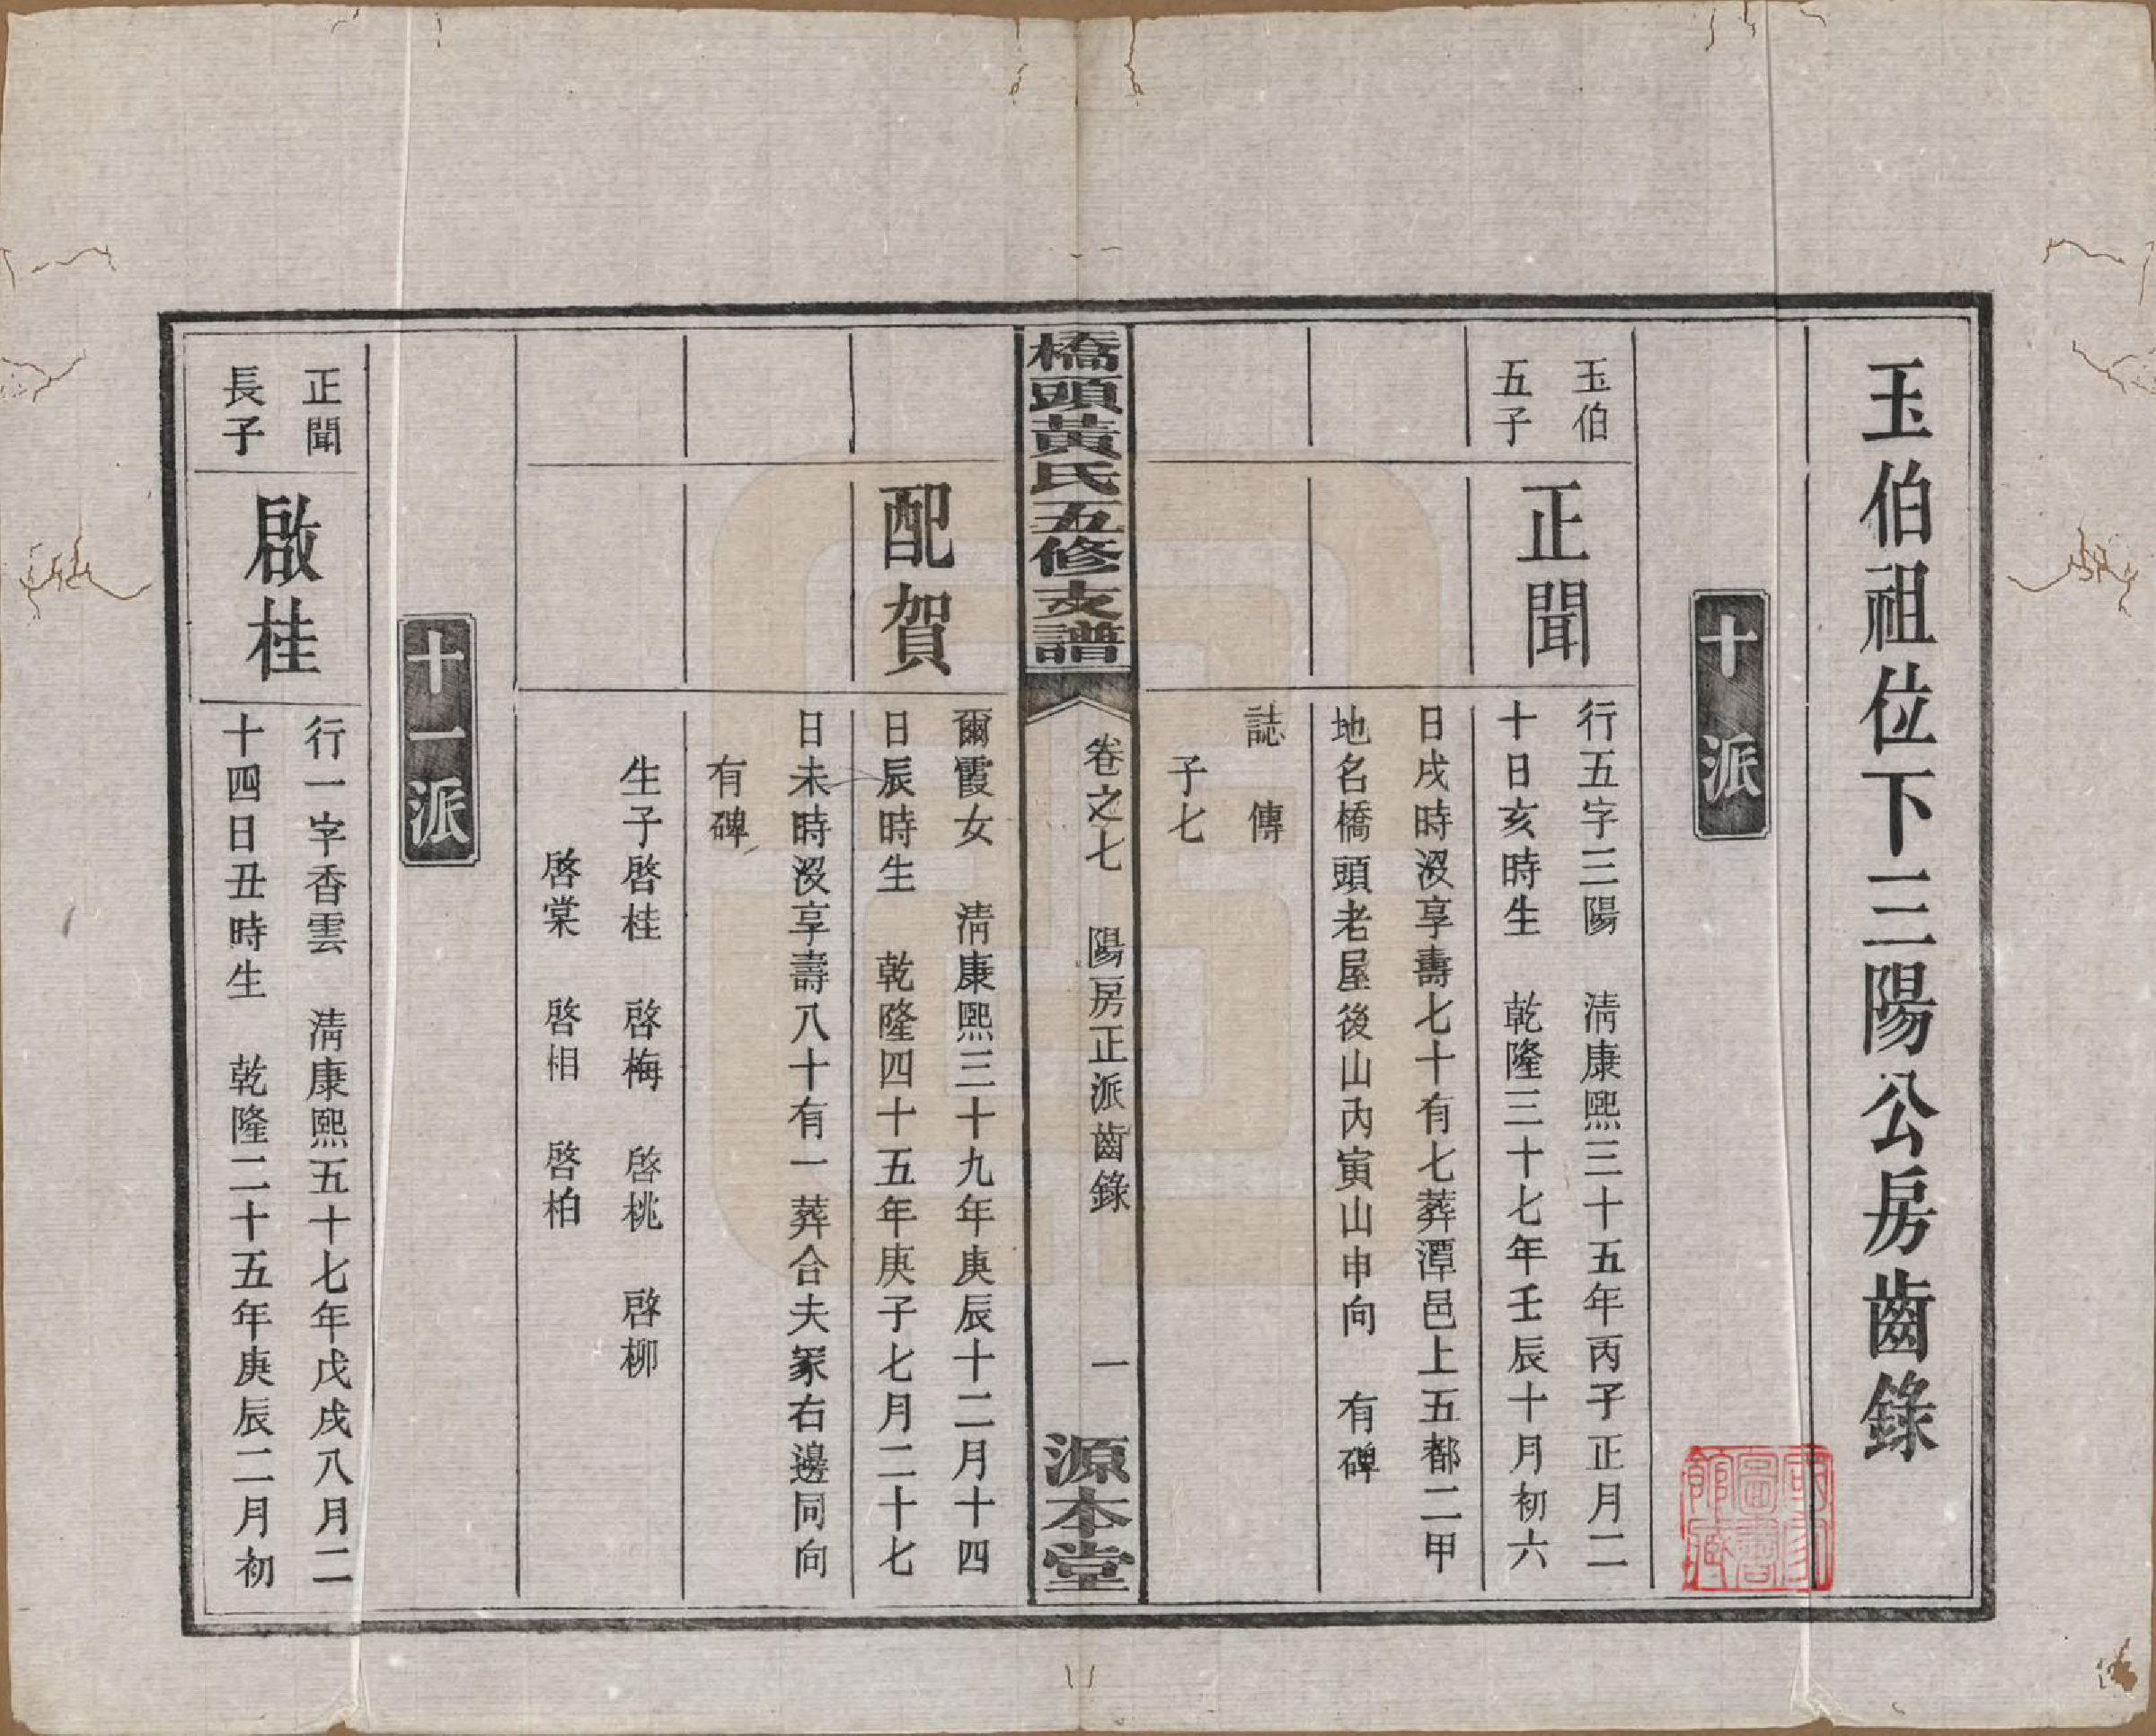 玉伯祖位下三陽公房齒錄
十派
玉伯
五子
正聞
行五字三陽　清康熙三十五年丙子正月二
十日亥時生　乾隆三十七年壬辰十月初六
日戌時沒享壽七十有七葬潭邑上五都二甲
地名橋頭老屋後山內寅山申向　有碑
誌　傳
子七
橋頭黃氏五修支譜
卷之七　陽房正派齒錄　一
源本堂
配賀
爾霞女　清康熙三十九年庚辰十二月十四
日辰時生　乾隆四十五年庚子七月二十七
日未時沒享壽八十有一葬合夫冢右邊同向
有碑
生子啓桂　啓梅　啓桃　啓柳
啓棠　啓相　啓柏
十一派
正聞
長子
啟桂
行一字香雲　清康熙五十七年戊戌八月二
十四日丑時生　乾隆二十五年庚辰二月初
國家圖書館藏